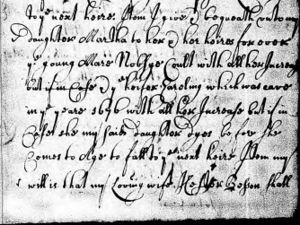 to ye next heire. Item I give & bequeath unto my
daughter Martha to her & her heires for ever
ye young Mare Coult with all her Increas
but if in Case & ye heifer which was
in ye yeare 1676 with all her Increase but if in
Case she my said daughter dyes before she
Comes to Age to fall to ye next heire Item my
will is that my Loving wife Hester Bosson shall